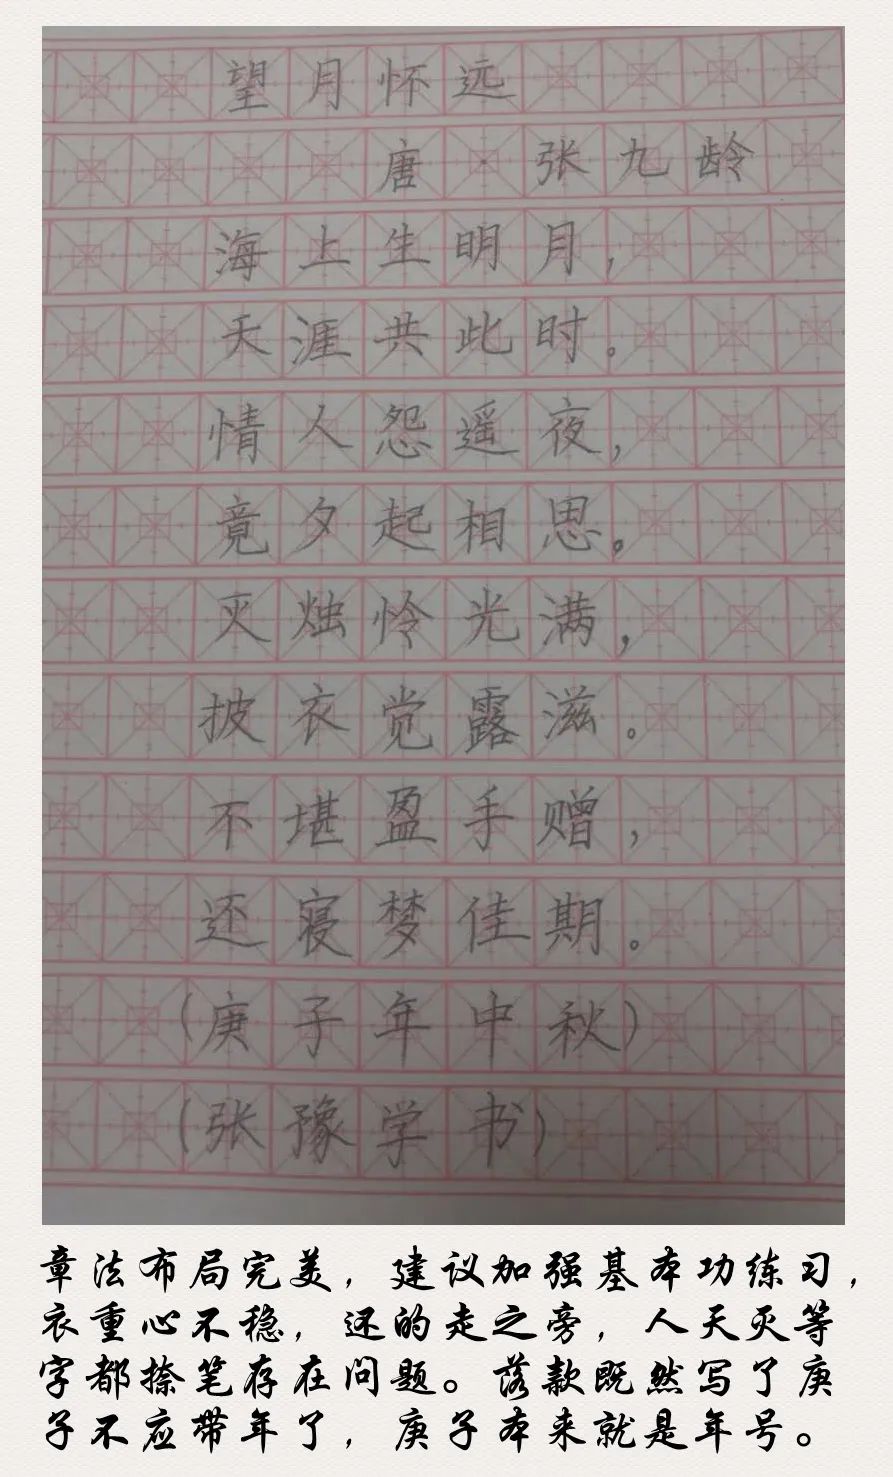 望月怀远
唐·张九龄
海上生明月，
天涯共此时。
情人怨遥夜，
竟夕起相思。
灭烛怜光满，
披衣觉露滋。
不堪盈手赠，
还寝梦佳期。
（庚子年中秋）
（张豫学书）
章法布局完美，建议加强基本功练习，
衣重心不稳，还的走之旁，人天灭等
字都捺笔存在问题。落款既然写了庚
子不应带年了，庚子本来就是年号。